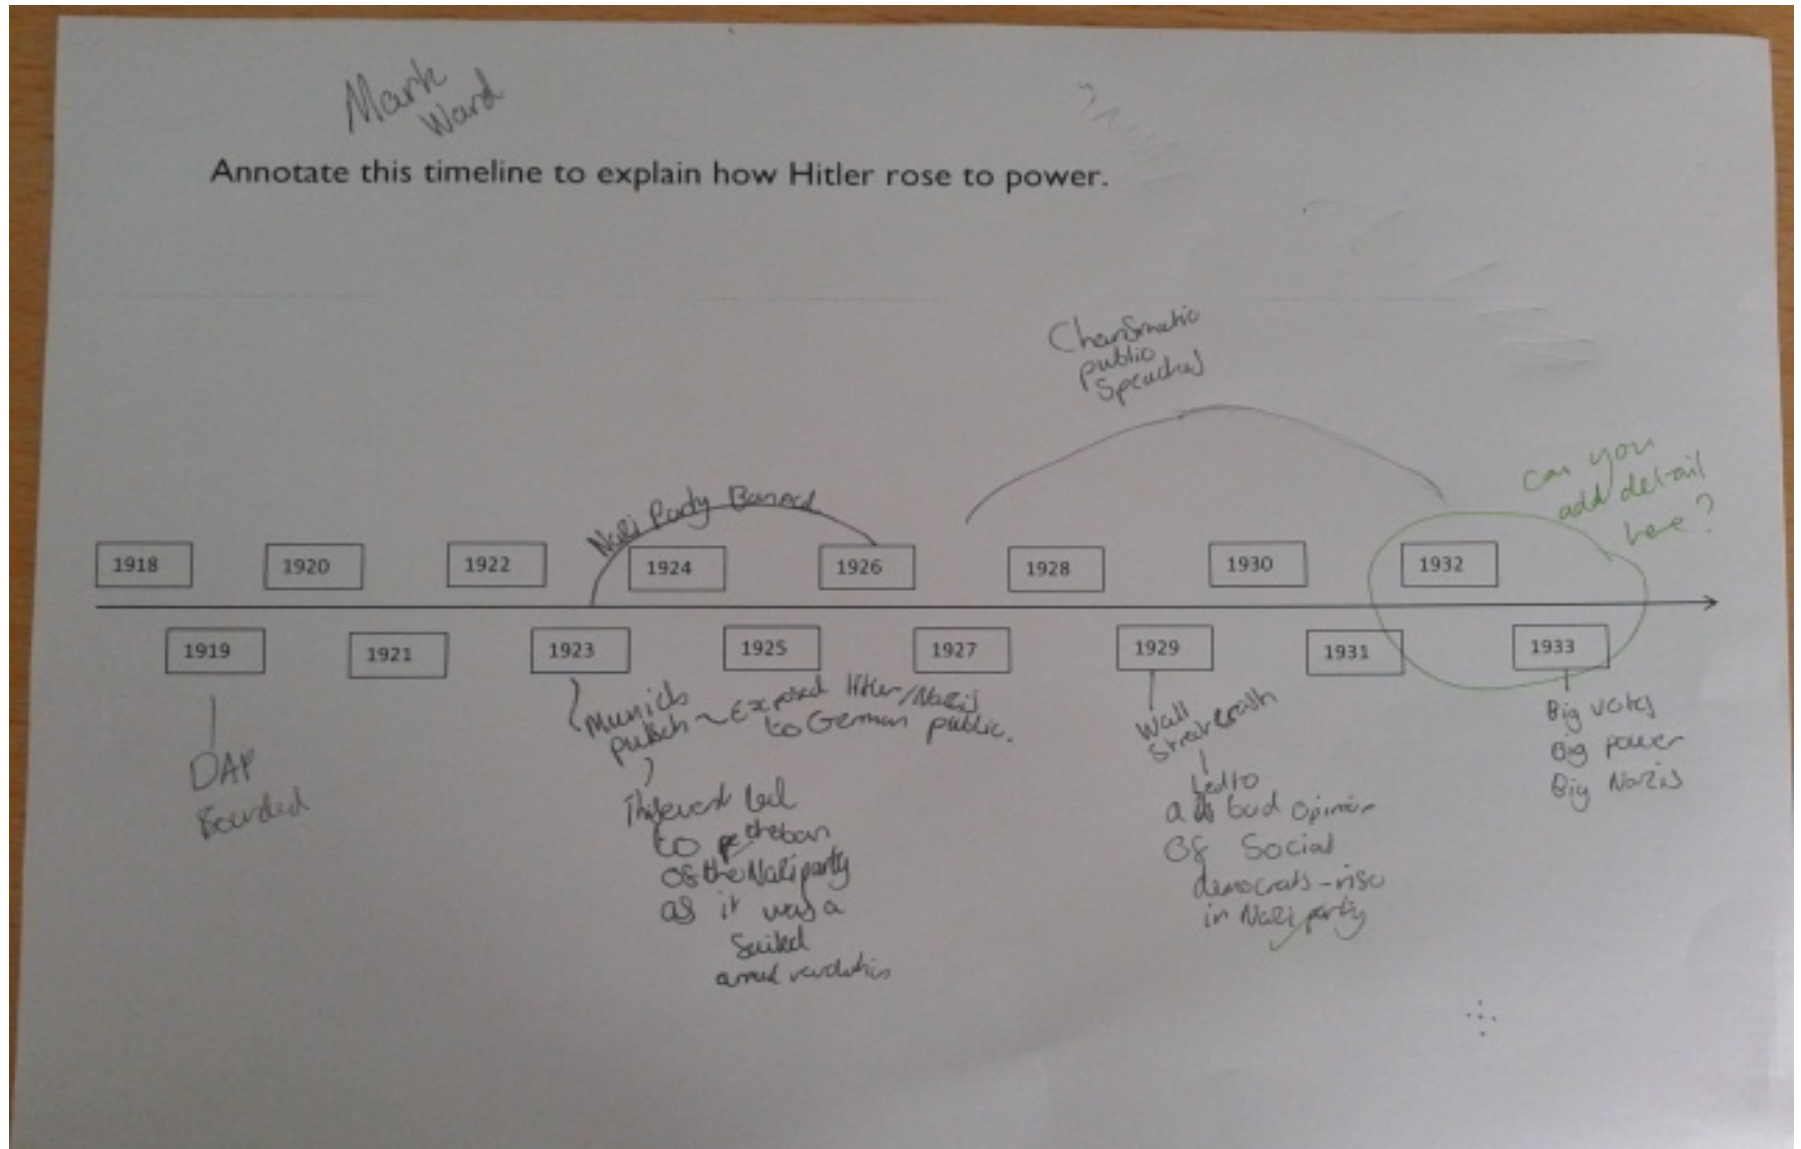 Mark
Ward
Annotate this timeline to explain how Hitler rose to power.
Charismatic
public
Speaches
can you
add detail
here?
Nazi Party Banned
1918
1920
1922
1924
1926
1928
1930
1932
1919
1921
1923
1925
1927
1929
1931
1933
DAP
Founded
Munich
putsch ~ Exposed Hitler/Nazis
to German public.
This event led
to the ban
of the Nazi party
as it was a
failed
armed revolution
Wall
street crash
Led to
a bad opinion
of Social
democrats - rise
in Nazi party
Big votes
Big power
Big Nazis